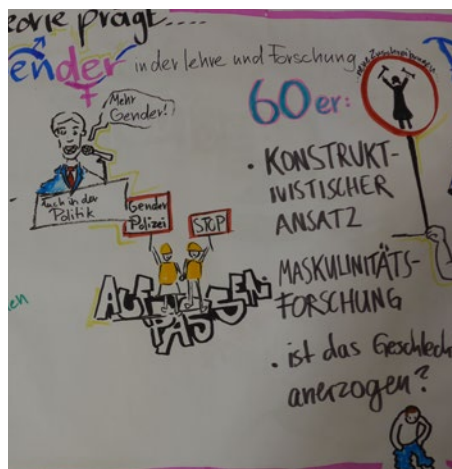 eorie prägt....
ender in der Lehre und Forschung
Mehr
Gender!
Auch in der
Politik
Gender
Polizei
STOP
AUF
PASSEN!
60er:
• KONSTRUKT-
IVISTISCHER
ANSATZ
MASKULINITÄTS-
FORSCHUNG
• ist das Geschlech
anerzogen?